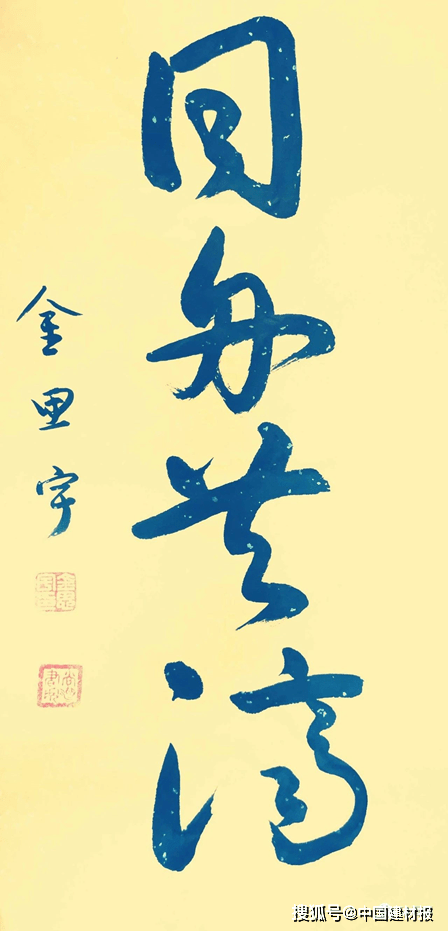 同舟共濟
金思宇
搜狐号@中国建材报